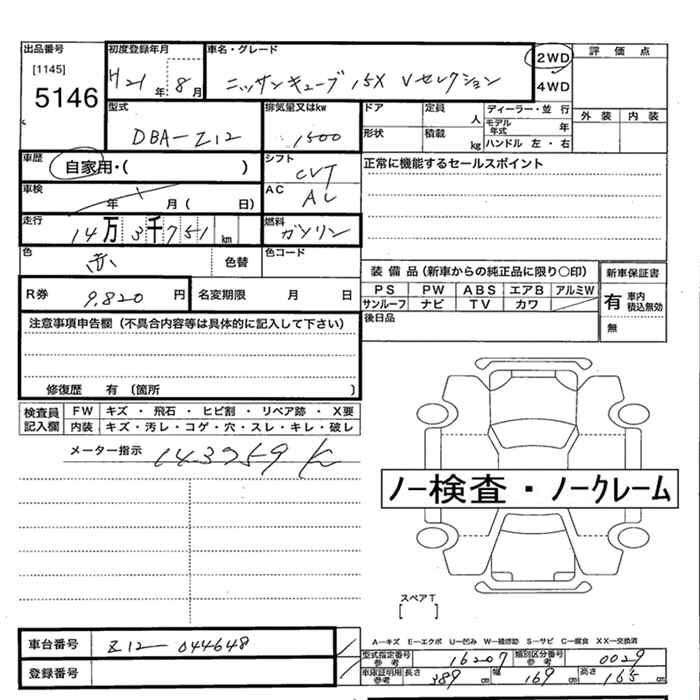 出品番号 初度登録年月 車名・グレード 評価点
[1145] H21年 8月 ニッサンキューブ 15X Vセレクション 2WD
5146 4WD
型式 排気量又はkw ドア 定員 人 ディーラー・並行 外装 内装
DBA-Z12 1500 形状 積載 kg モデル年式 年
ハンドル 左・右
車歴 自家用・( ) シフト CVT 正常に機能するセールスポイント
車検 年 月 ( 日) AC
走行 14万3千751km 燃料 ガソリン
色 赤 色替 色コード
装備品(新車からの純正品に限り○印) 新車保証書
R券 9,820円 名変期限 月 日 PS PW ABS エアB アルミW 有 車内積込無効
サンルーフ ナビ TV カワ 無
注意事項申告欄(不具合内容等は具体的に記入して下さい) 後日品
修復歴 有 〔箇所 〕
検査員記入欄 FW キズ・飛石・ヒビ割・リペア跡・X要
内装 キズ・汚レ・コゲ・穴・スレ・キレ・破レ
メーター指示 143759 K
ノー検査・ノークレーム
スペアT
[ ]
車台番号 Z12-044648 A-キズ E-エクボ U-凹み W-補修跡 S-サビ C-腐食 XX-交換済
型式指定番号 参考 16207 類別区分番号 参考 0029
登録番号 車庫証明用 参考 長さ 389cm 幅 169cm 高さ 165cm